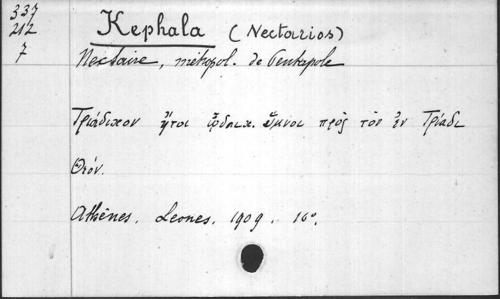 337
212
7
Kephala (Nectarios)
Nectaire, métropol. de Pentapole
Τριάδικον ἤτοι ᾠδαι κ. ὕμνοι πρὸς τὸν ἐν Τριάδι
Θεόν.
Athènes. Leones. 1909. 16°.